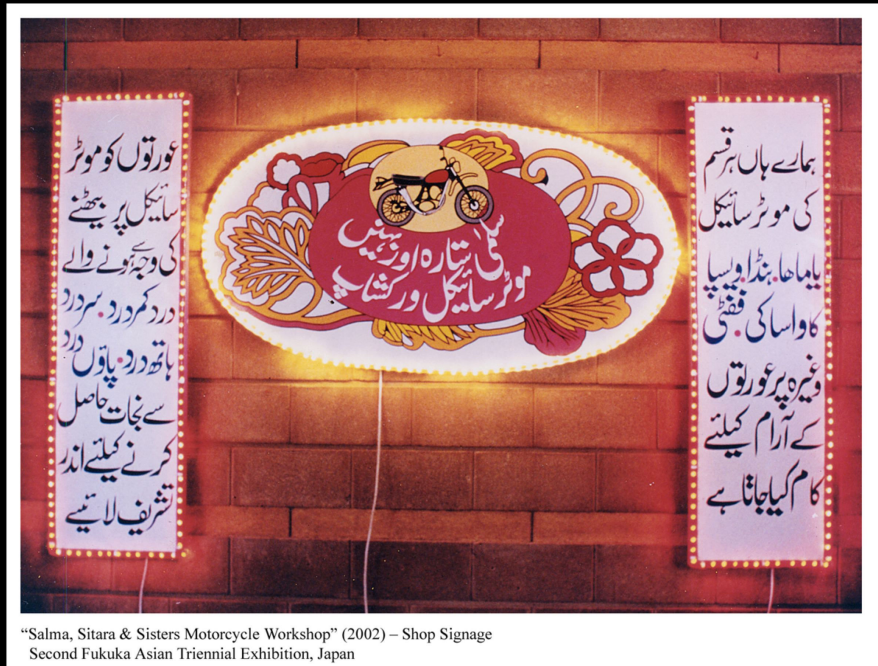 ہمارے ہاں ہر قسم
کی موٹر سائیکل
یاماھا۔ ہنڈا۔ ویسپا
کاواساکی۔ ففٹی
وغیرہ پر عورتوں
کے آرام کیلئے
کام کیا جاتا ہے
سلمی ستارہ اور بہنیں
موٹر سائیکل ورکشاپ
عورتوں کو موٹر
سائیکل پر بیٹھنے
کی وجہ سے ہونے والے
درد کمر درد۔ سر درد
ہاتھ درد۔ پاؤں درد
سے نجات حاصل
کرنے کیلئے اندر
تشریف لائیے
“Salma, Sitara & Sisters Motorcycle Workshop” (2002) – Shop Signage
Second Fukuka Asian Triennial Exhibition, Japan